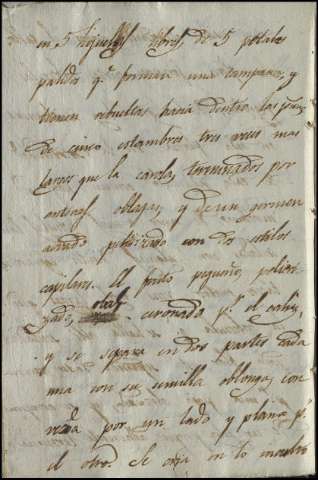 en 5 hojuelas libres, de 5 petalos
palidos q.e forman una campana, y
tienen rebueltas hacia dentro las
de cinco estambres tres veces mas
largos que la corola, terminados por
anteras oblongas, y de un germen
aovado pulverizado con dos estilos
capilares. El fruto pequeño, pulveri-
zado, coronado p.r el caliz,
y se separa en dos partes cada
una con su semilla oblonga, con-
vexa por un lado y plana p.r
el otro. Se cria en to